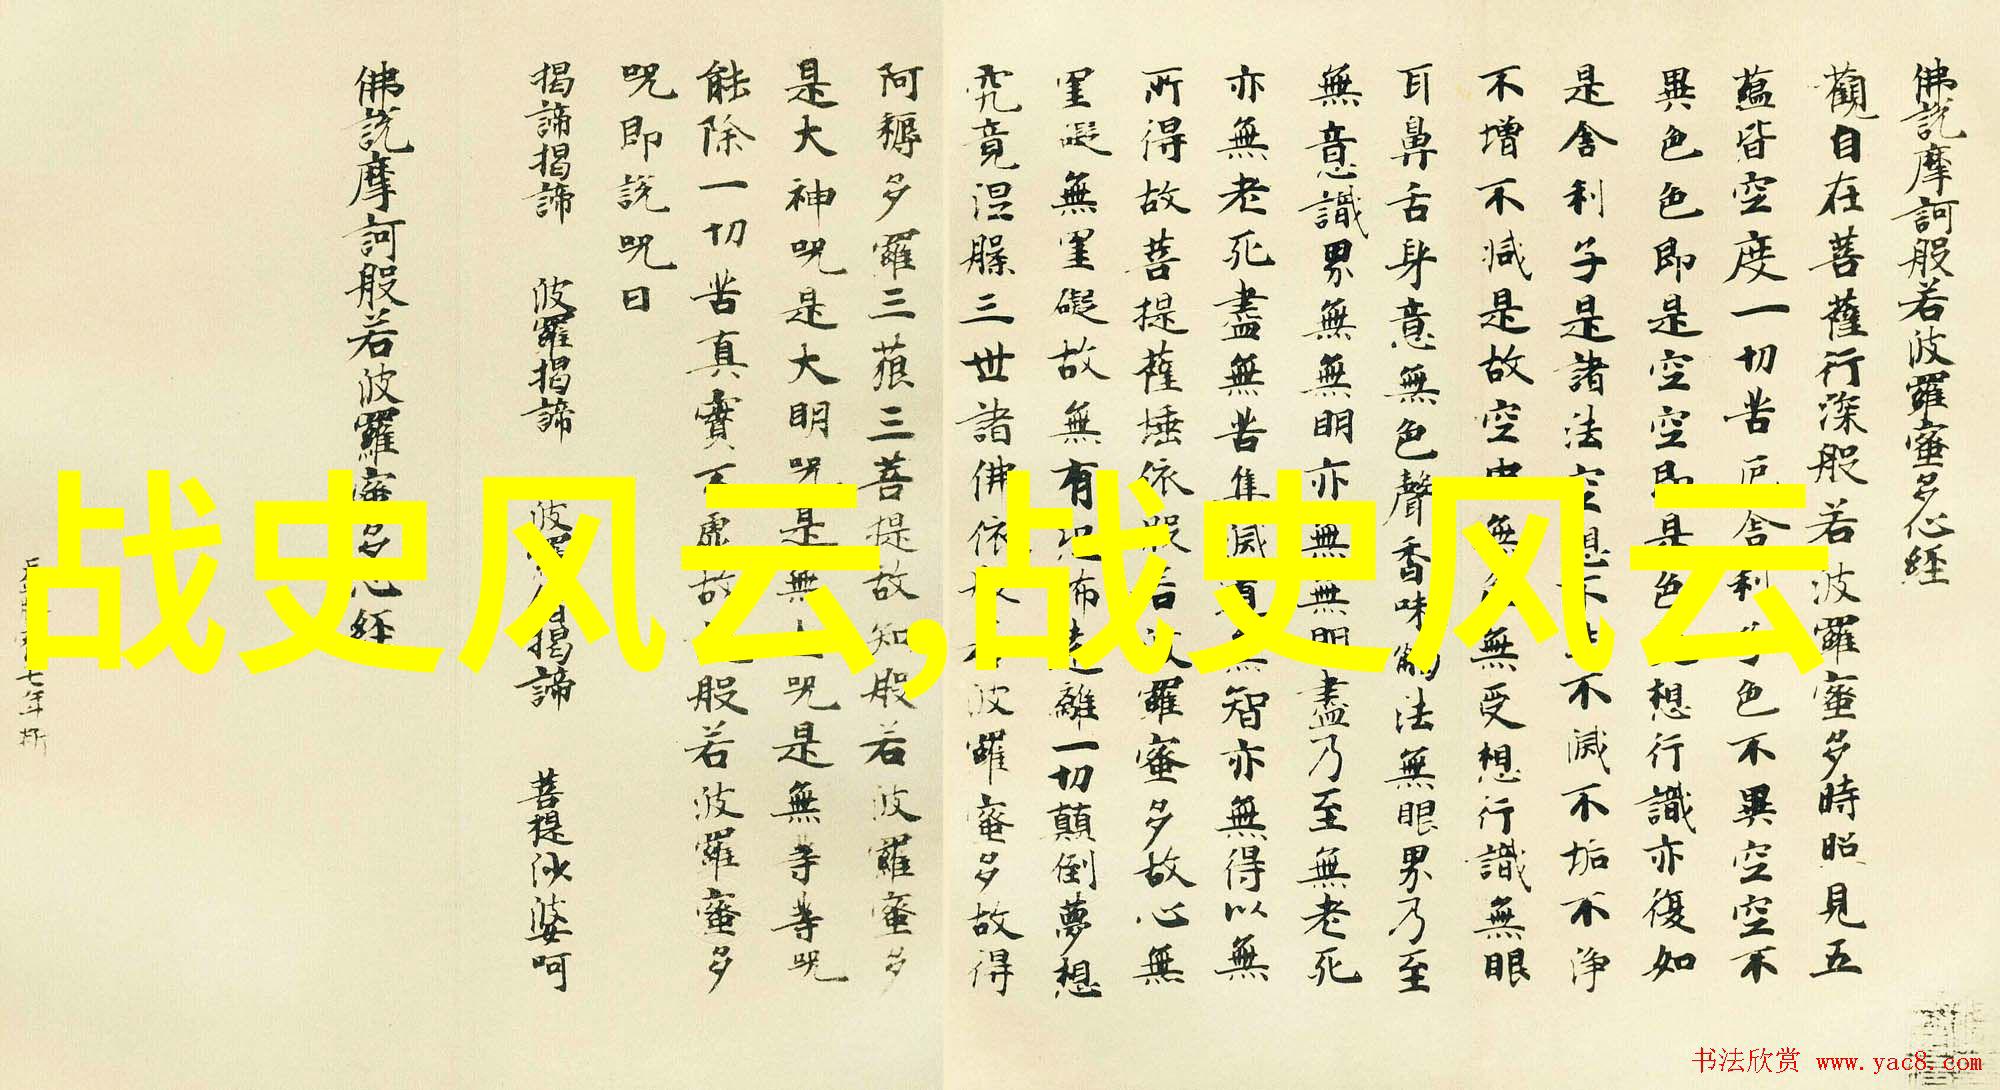 佛說摩訶般若波羅蜜多心經
觀自在菩薩行深般若波羅蜜多時照見五
蘊皆空度一切苦厄舍利子色不異空空不
異色色即是空空即是色想行識亦復如
是舍利子是諸法空想不不滅不垢不淨
不增不減是故空中無無受想行識無眼
耳鼻舌身意無色聲香味觸法無眼界乃至
無意識界無無明亦無無明盡乃至無老死
亦無老死盡無苦集滅道無智亦無得以無
所得故菩提薩埵依般若波羅蜜多故心無
罣礙無罣礙故無有恐怖遠離一切顛倒夢想
究竟涅槃三世諸佛依般若波羅蜜多故得
阿耨多羅三藐三菩提故知般若波羅蜜多
是大神呪是大明呪是無上呪是無等等呪
能除一切苦真實不虛故般若波羅蜜多
呪即說呪曰
揭諦揭諦 波羅揭諦 波羅揭諦 菩提沙婆呵
佛說摩訶般若波羅蜜多心經
七年
战史风云,战史风云
书法欣赏 www.yac8.com